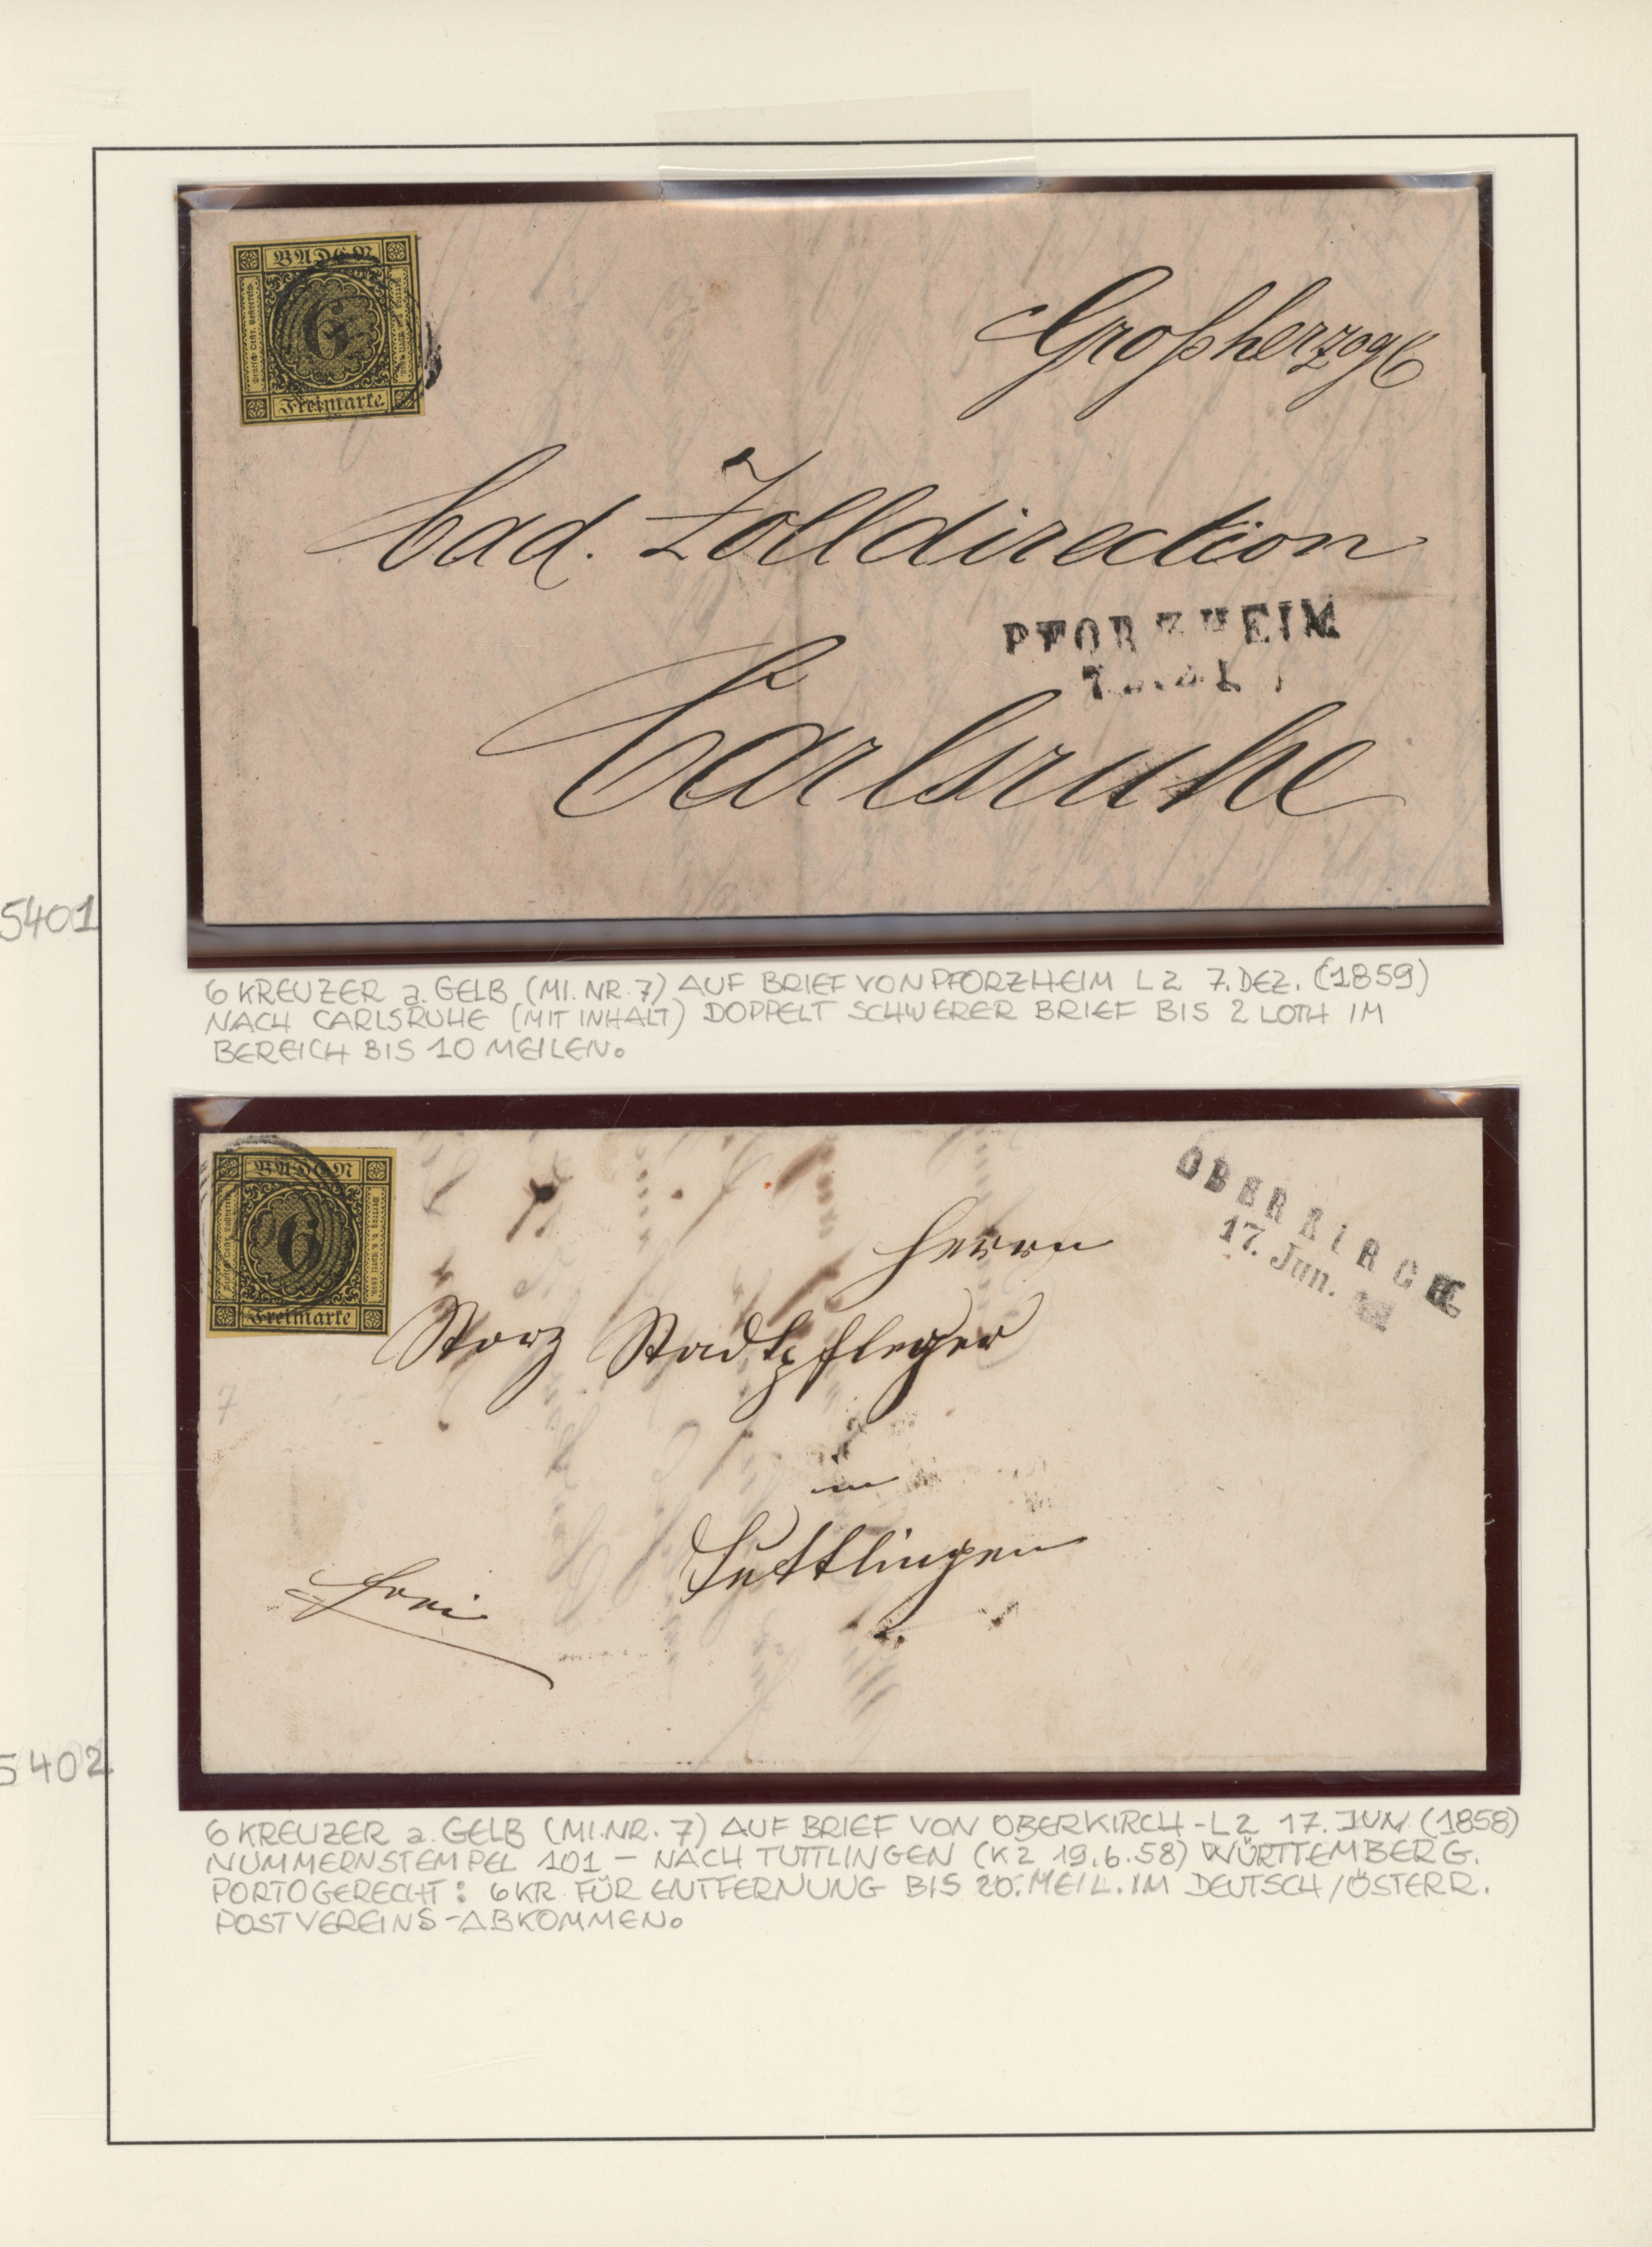 BADEN
6
Freimarke
Großherzogl
bad. Zolldirection
PFORZHEIM
7
Carlsruhe
5401
6 KREUZER a. GELB (MI. NR. 7) AUF BRIEF VON PFORZHEIM L2 7. DEZ. (1859)
NACH CARLSRUHE (MIT INHALT) DOPPELT SCHWERER BRIEF BIS 2 LOTH IM
BEREICH BIS 10 MEILEN.
BADEN
6
Freimarke
OBERKIRCH
17. Jun.
Herrn
Storz Stadtpfleger
in
Tuttlingen
frei
7
5402
6 KREUZER a. GELB (MI.NR. 7) AUF BRIEF VON OBERKIRCH - L2 17. JUN (1858)
NUMMERNSTEMPEL 101 – NACH TUTTLINGEN (K2 19.6.58) WÜRTTEMBERG.
PORTOGERECHT: 6 KR. FÜR ENTFERNUNG BIS 20. MEIL. IM DEUTSCH/ÖSTERR.
POSTVEREINS-ABKOMMEN.